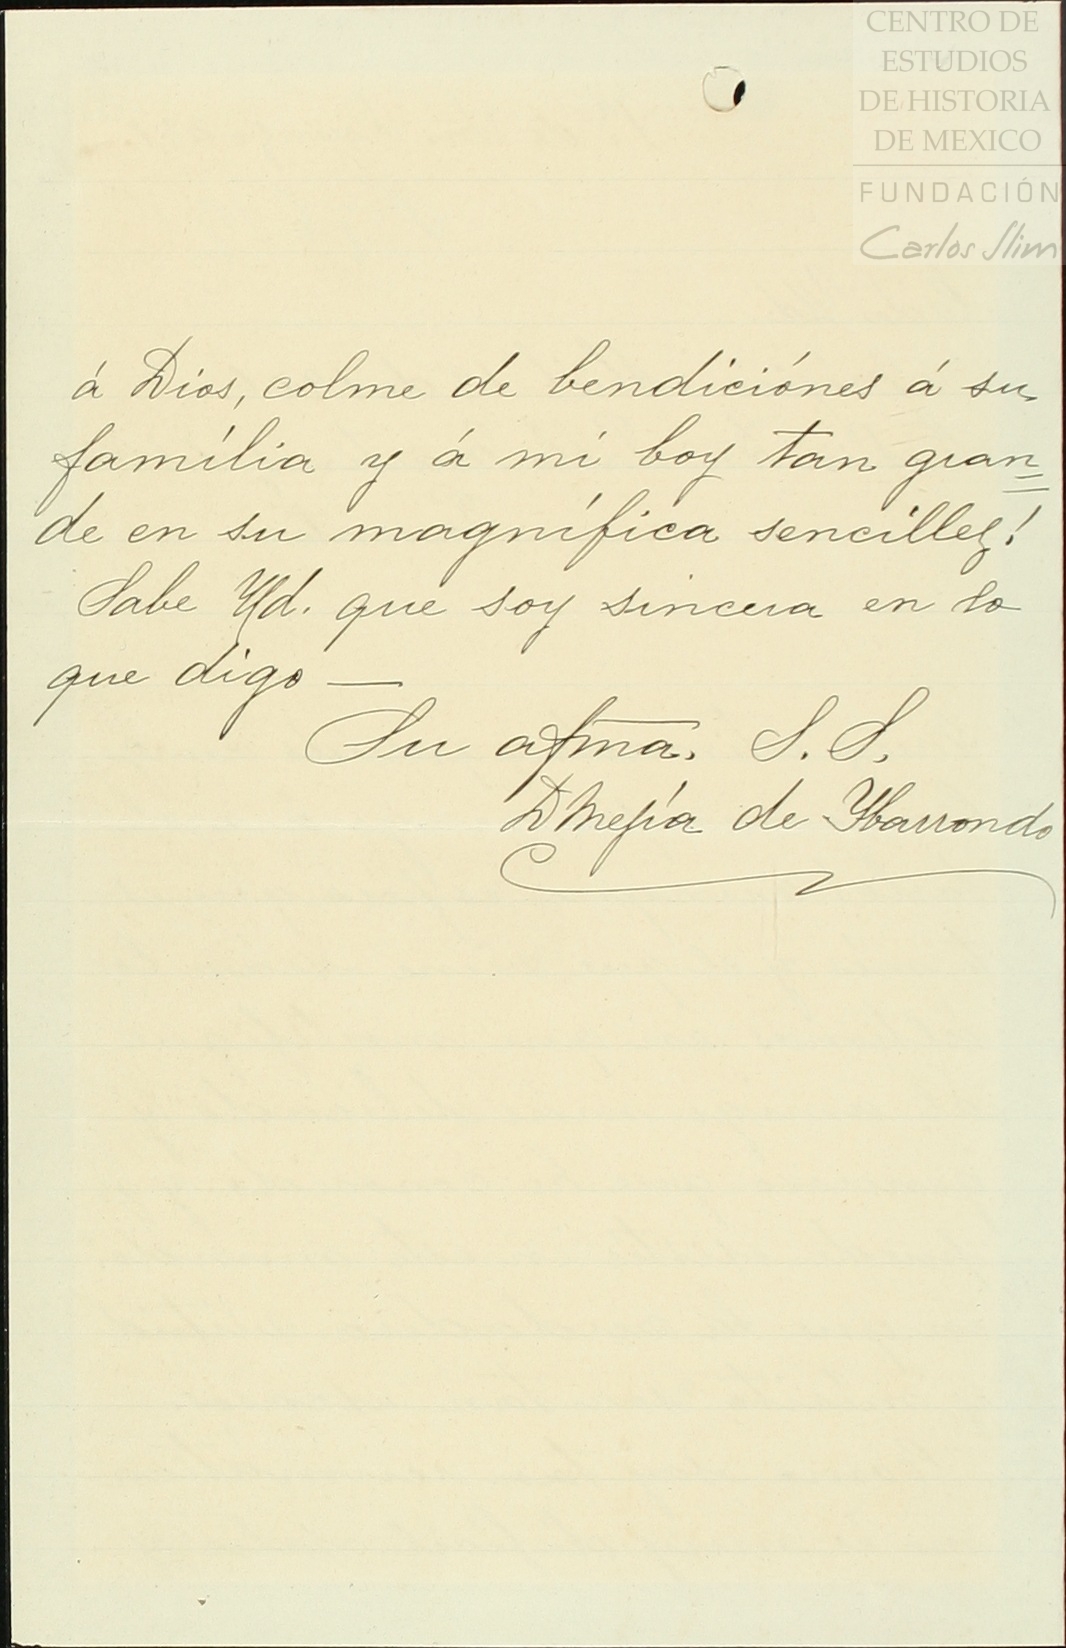 CENTRO DE
ESTUDIOS
DE HISTORIA
DE MEXICO
FUNDACIÓN
Carlos Slim
á Dios, colme de bendiciónes á su
família y á mi boy tan gran=
de en su magnífica sencillez!
Sabe Ud. que soy sincera en lo
que digo —
Su afma. S. S.
D Mejía de Ybarrondo